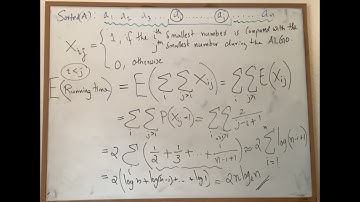 Sorted(A): a₁ a₂ a₃ ... aᵢ ...... aⱼ ... aₙ
Xᵢⱼ = { 1, if the iᵗʰ smallest number is compared with the
jᵗʰ smallest number during the ALGO.
0, otherwise
i<j
E(Running time) = E(∑ᵢ ∑ⱼ>ᵢ Xᵢⱼ) = ∑ᵢ ∑ⱼ>ᵢ E(Xᵢⱼ)
= ∑ᵢ ∑ⱼ>ᵢ P(Xᵢⱼ=1) = ∑ᵢ ∑ⱼ>ᵢ 2/(j-i+1)
= 2 ∑ᵢ (1/2 + 1/3 + ... + 1/(n-i+1)) ≈ 2 ∑ᵢ₌₁ⁿ log(n-i+1)
= 2(log n + log(n-1) + ... + log 1) ≈ 2n logₑ n